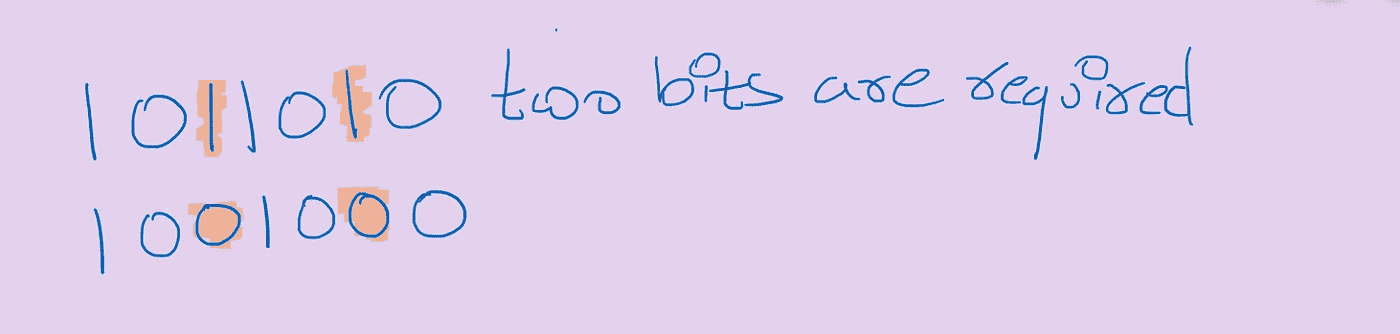 1011010 two bits are required
1001000